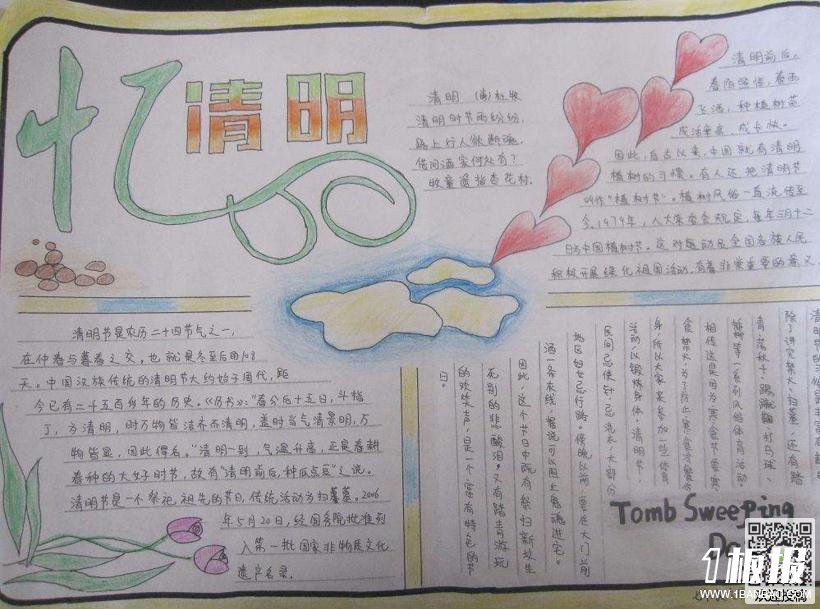 忆清明
清明 (唐)杜牧
清明时节雨纷纷,
路上行人欲断魂。
借问酒家何处有?
牧童遥指杏花村.
清明前后,
春阳照临,春雨
飞洒,种植树苗
成活率高,成长快。
因此,自古以来,中国就有清明
植树的习惯。有人还把清明节
叫作"植树节"。植树风俗一直流传至
今.1979年,人大常委会规定,每年三月十二
日为中国植树节。这对动员全国各族人民
积极开展绿化祖国活动,有着非常重要的意义
清明节是农历二十四节气之一,
在仲春与暮春之交,也就是冬至后的108
天。中国汉族传统的清明节大约始于周代,距
今已有二千五百多年的历史。《历书》:"春分后十五日,斗指
丁,为清明,时万物皆洁齐而清明,盖时当气清景明,万
物皆显,因此得名。"清明一到,气温升高,正是春耕
春种的大好时节,故有"清明前后,种瓜点豆"之说。
清明节是一个祭祀祖先的节日,传统活动为扫墓。2006
年5月20日,经国务院批准列
入第一批国家非物质文化
遗产名录.
除了讲究禁火、扫墓,还有踏
青、荡秋千、踢蹴鞠、打马球、
插柳等一系列风俗体育活动
相传这是因为寒食节要寒
食禁火,为了防止寒食冷餐伤
身,所以大家来参加一些体育
活动,以锻炼身体。清明节,
民间忌使针,忌洗衣,大部分
地区妇女忌行路。傍晚以前,要在大门前
洒一条灰线,据说可以阻止鬼魂进宅。
因此,这个节日中既有祭扫新坟生
死别的悲酸泪,又有踏青游玩
的欢笑声,是一个富有特色的节
日。
Tomb Sweeping
1板报
WWW.1BANBAO.COM
欢迎投稿